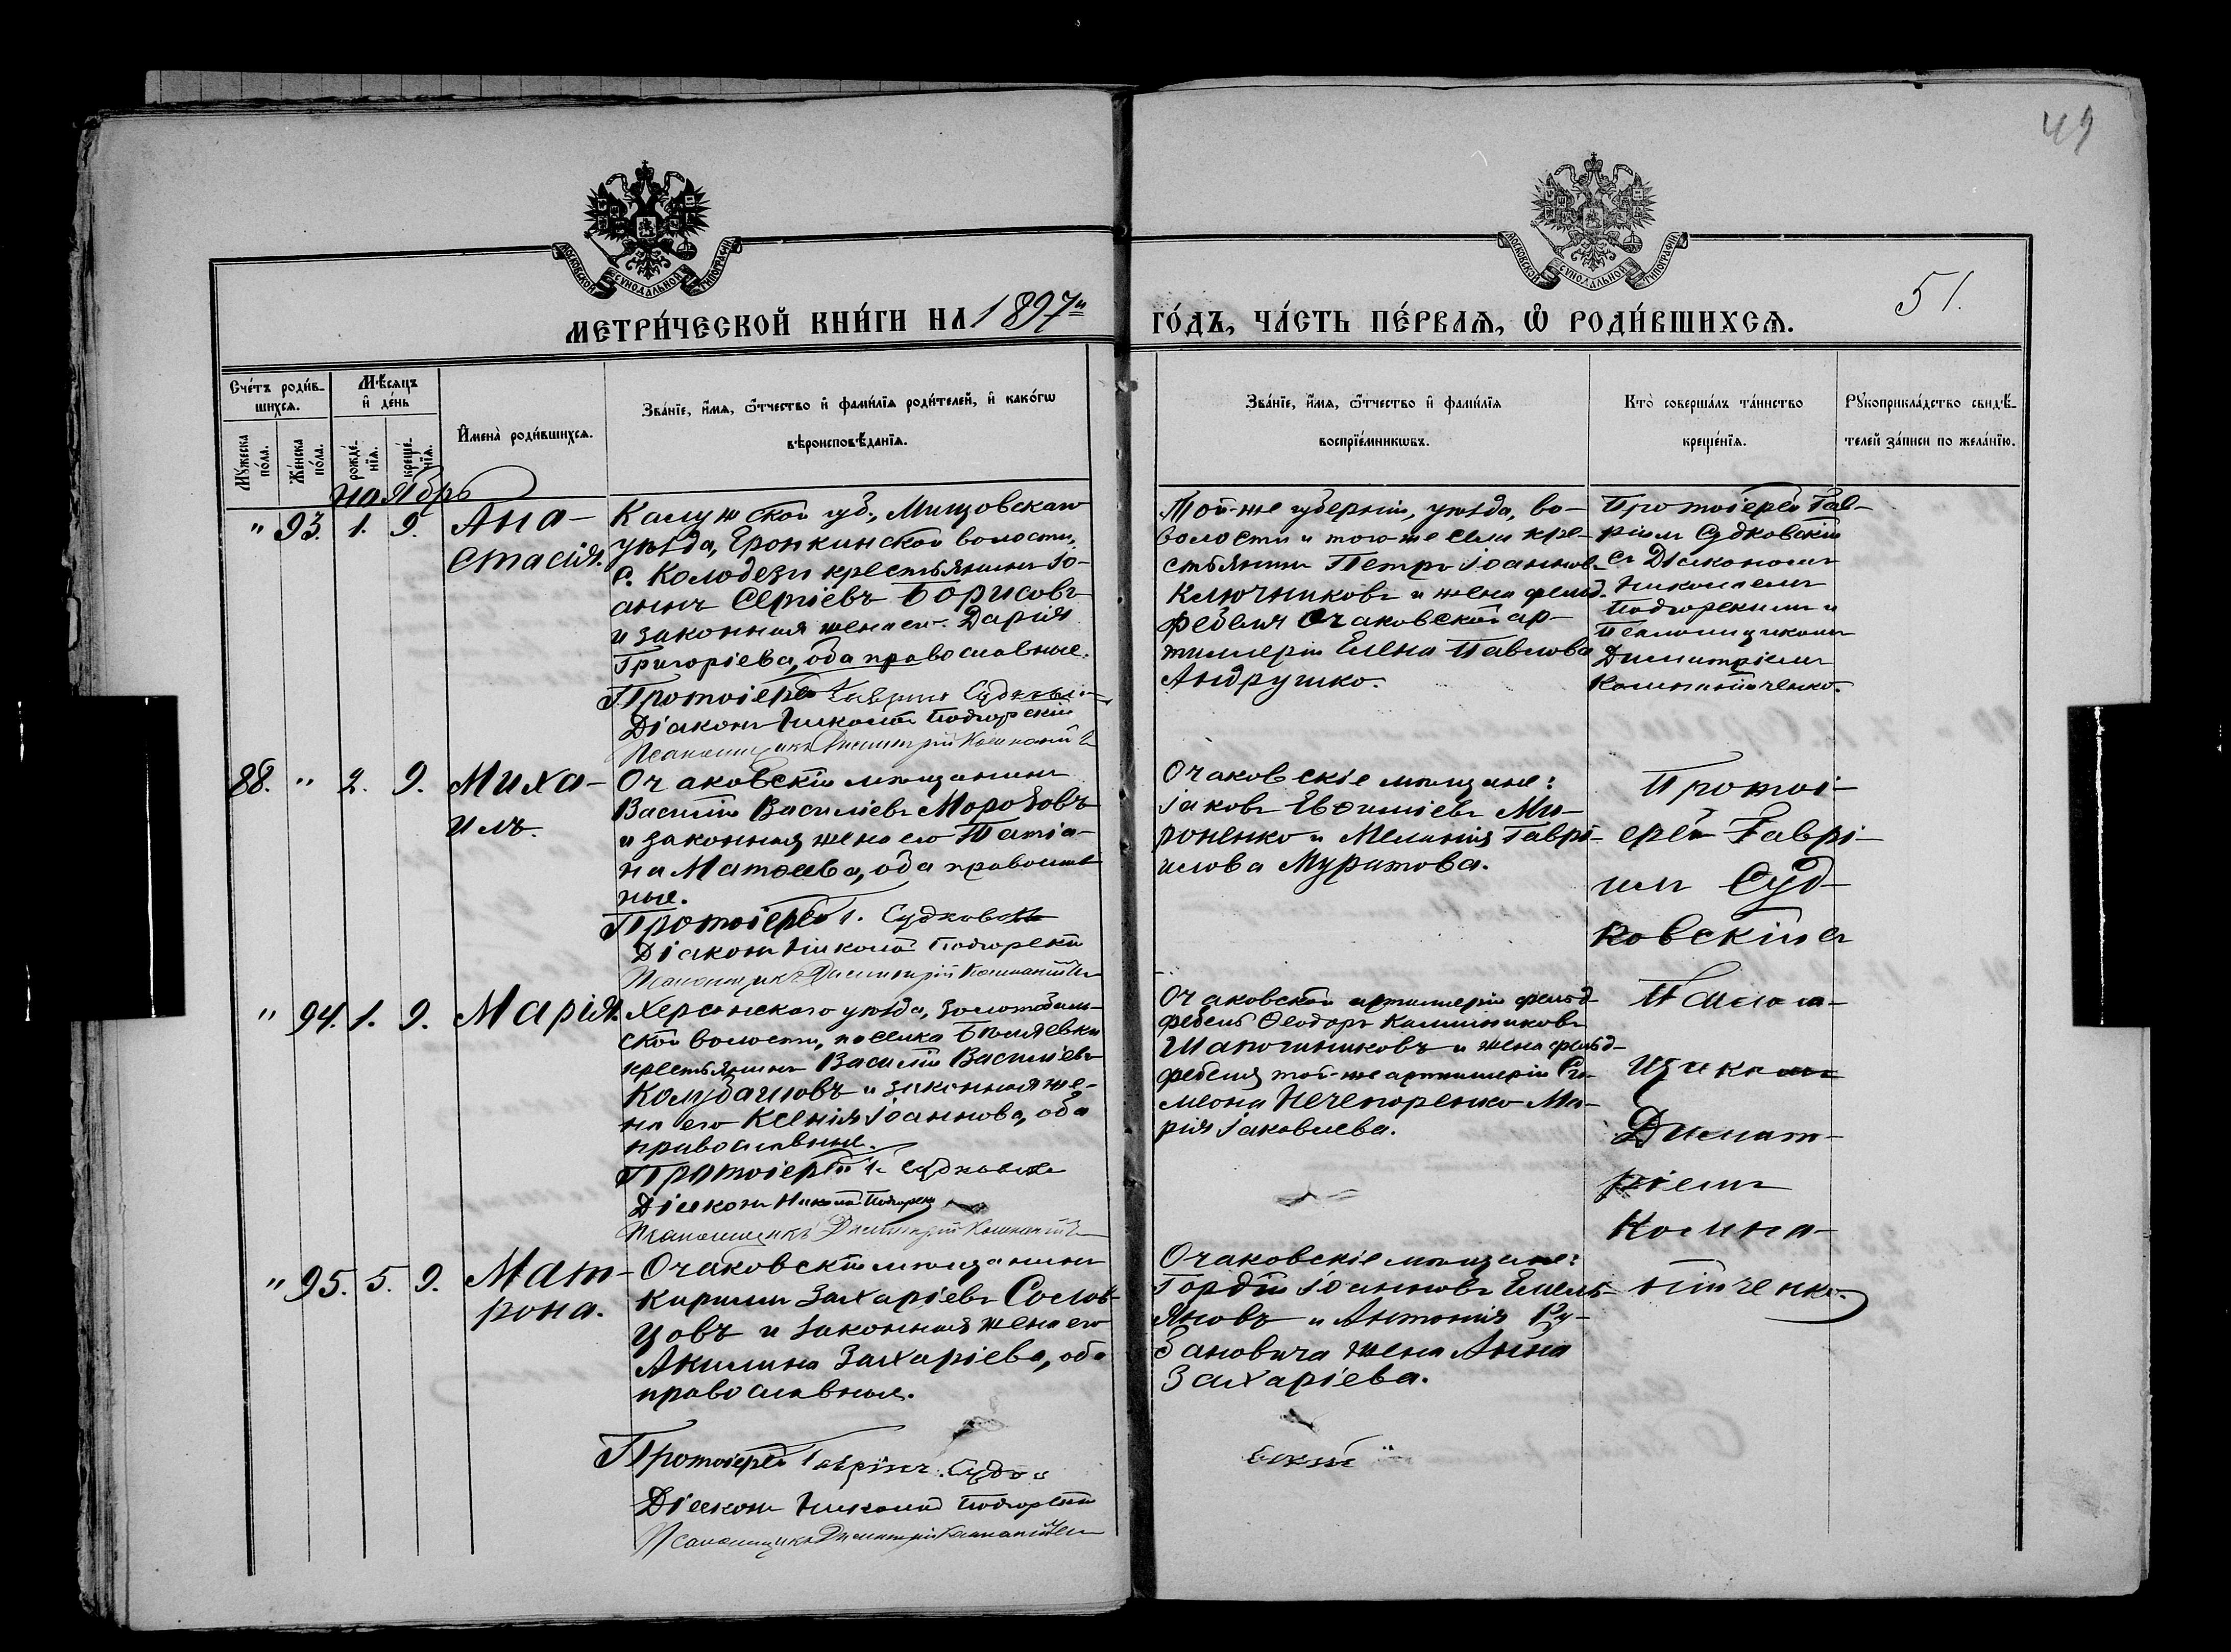 49
МОСКОВСКОЙ СѴНОДАЛЬНОЙ ТИПОГРАФІИ
МОСКОВСКОЙ СѴНОДАЛЬНОЙ ТИПОГРАФІИ
МЕТРИ́ЧЕСКОЙ КНИ́ГИ НА 1897й
ГО́ДЪ, ЧА́СТЬ ПЕ́РВАЯ, Ѡ҆ РОДИ́ВШИХСЯ.
51.
Сче́тъ роди́в-
шихся.
Мѣ́сяцъ
и҆ де́нь
Му́жеска
по́ла.
Же́нска
по́ла.
рожде́-
нїя.
креще́-
нїя.
И҆мена̀ роди́вшихся.
Зва́нїе, и҆́мя, ѻ҆́тчество и҆ фами́лїя роди́телей, и҆ како́гѡ
вѣроисповѣ́данїя.
Зва́нїе, и҆́мя, ѻ҆́тчество и҆ фами́лїя
воспрїе́мникѡвъ.
Кто̀ соверша́лъ та́инство
креще́нїя.
Рукоприкла́дство свидѣ́-
телей за́писи по жела́нїю.
Ноябрь
" 93. 1. 9.
Ана-
стасія.
Калужской губ., Мищовскаго
уѣзда, Еронкинской волости,
с. Колодези крестьянинъ Іо-
аннъ Сергіевъ Борисовъ
и законная жена его Дарія
Григоріева, оба православные.
Протоіерей Гавріилъ Судковскі
Діаконъ Николай Подгорскій
Псаломщикъ Димитрій Компаній
Той-же губерніи, уѣзда, во-
волости и того-же села кре-
стьянинъ Петръ Іоанновъ
Ключниковъ и жена фельд-
фебеля Очаковской ар-
тиллеріи Елена Павлова
Андрушко.
Протоіерей Гав-
ріилъ Судковскій
съ Діакономъ
Николаемъ
Подгорскимъ и
Псаломщикомъ
Димитріемъ
88. " 2. 9.
Миха-
илъ.
Очаковскій мѣщанинъ
Василій Василіевъ Морозовъ
и законная жена его Татіа-
на Матѳеева, оба православ
ные.
Протоіерей Г. Судковскі
Діаконъ Николай Подгорскій
Псаломщикъ Димитрій
Очаковскіе мѣщане:
Іаковъ Евѳиміевъ Ми-
роненко и Меланія Гаврі-
илова Муратова.
Протоі-
ерей Гаврі-
илъ Суд-
ковскій съ
Псалом-
щикомъ
Димит-
ріемъ
Компа-
нійченко.
" 94. 1. 9.
Марія.
Херсонскаго уѣзда, Золотобал-
ской волости, поселка Бѣляевки
крестьянинъ Василій Василіевъ
и законная же-
на его Ксенія Іоаннова, оба
православные.
Протоіерей Г. Судковскі
Діаконъ Николай Подгорск
Псаломщикъ Димитрій
Очаковской артиллеріи фельд-
фебель Ѳеодоръ Калинниковъ
Шапошниковъ и жена фельд-
фебеля той-же артиллеріи Си-
меона Нечепоренко Ма-
рія Іаковлева.
" 95. 5. 9.
Мат-
рона.
Очаковскій мѣщанинъ
Кириллъ Захаріевъ Соло-
и законная жена его
Акилина Захаріева, оба
православные.
Протоіерей Гавріилъ Судко
Діаконъ Николай Подгорскій
Псаломщикъ Димитрій
Очаковскіе мѣщане:
Гордій Іоанновъ Емель-
яновъ и Антонія Ру-
зановича жена Анна
Захаріева.
вскій